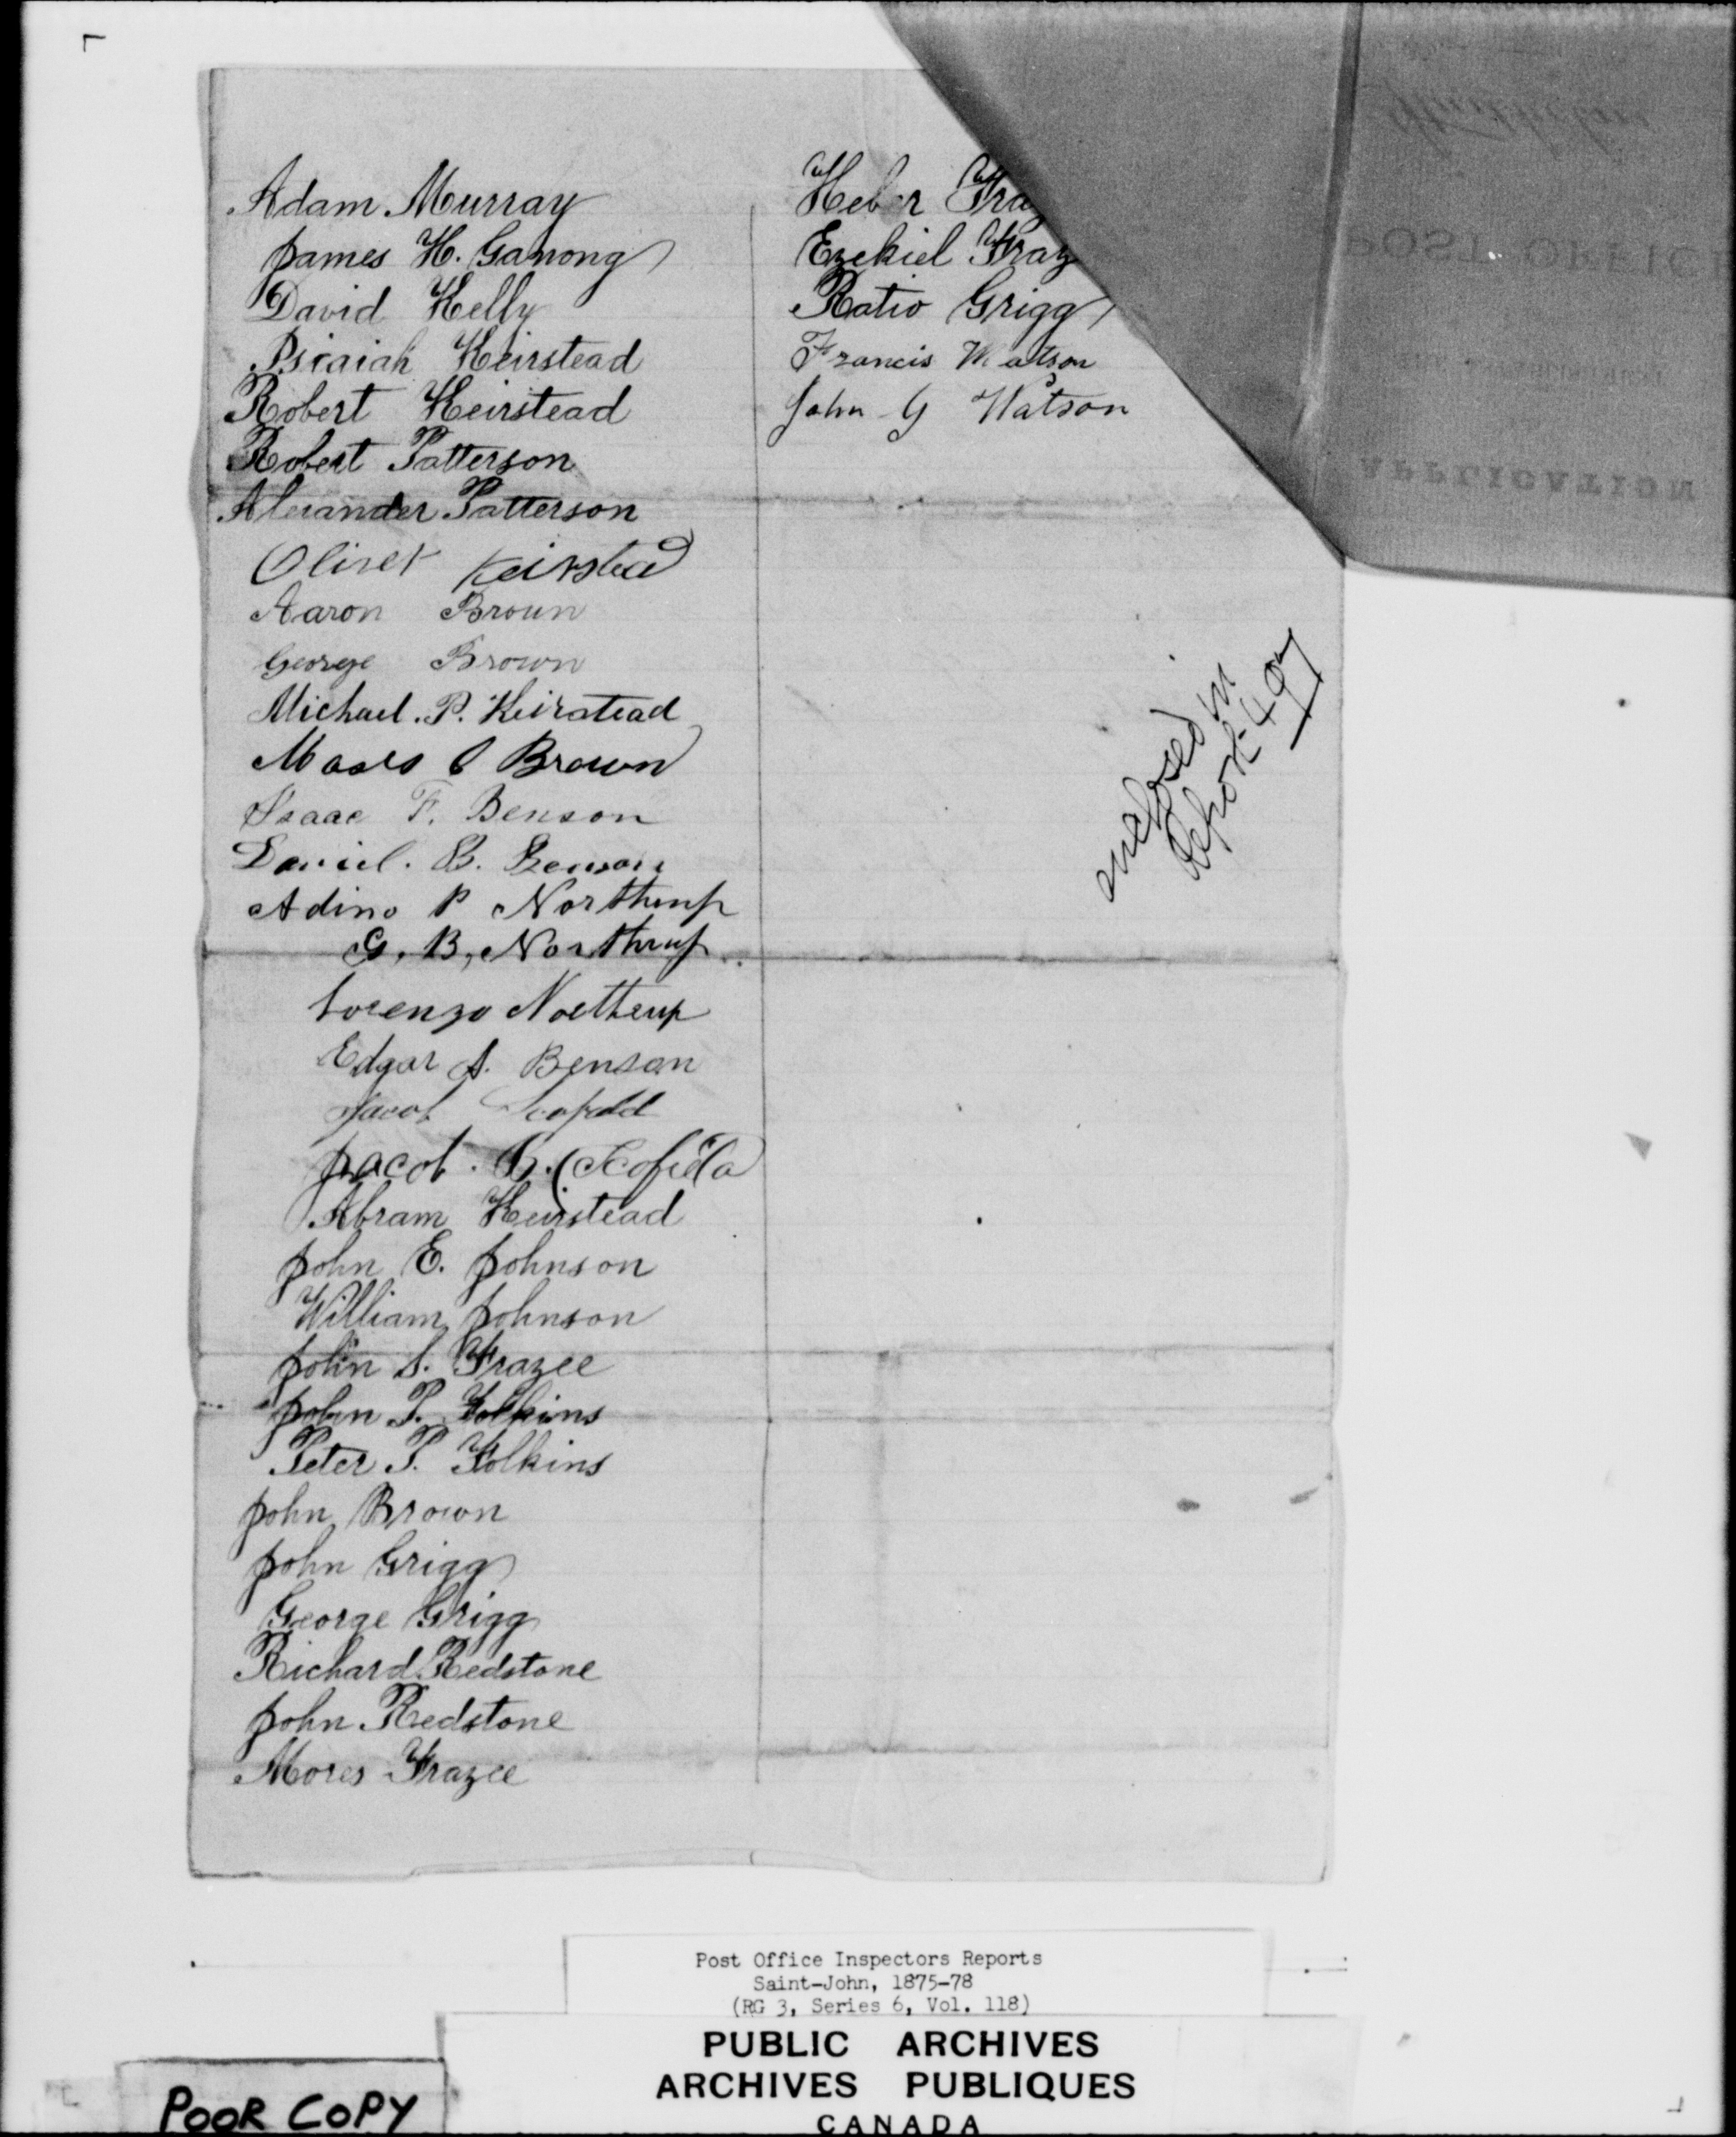 Adam Murray
James H. Ganong
David Kelly
Isiaiah Keirstead
Robert Keirstead
Robert Patterson
Alexander Patterson
Oliver Keirstead
Aaron Brown
George Brown
Michael. P. Keirstead
Moses C Brown
Isaac F. Benson
Daniel. B. Benson
Adino P Northrup
G. B, Northrup
Lorenzo Northrup
Edgar A. Benson
Jacob Scofield
Jacob. B. Scofield
Abram Keirstead
John E. Johnson
William Johnson
John S. Frazee
John P. Folkins
Peter P. Folkins
John Brown
John Grigg
George Grigg
Richard Redstone
John Redstone
Mores Frazee
Heber Fraz
Ezekiel Fraz
Ratio Grigg
Francis Watson
John G Watson
enclosed in
Report 497
POST OFFIC
APPLICATION
Post Office Inspectors Reports
Saint-John, 1875-78
(RG 3, Series 6, Vol. 118)
PUBLIC ARCHIVES
ARCHIVES PUBLIQUES
CANADA
POOR COPY